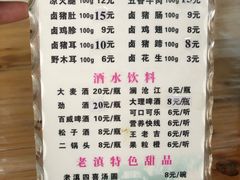 凉火腿 100g 12元 五香牛肉 100g
卤猪肚 100g 15元 卤猪肠 100g 8元
卤鸡胗 100g 9元 卤鸡 100g 8元
卤猪耳 100g 10元 卤猪蹄 100g 8元
野木耳 100g 6元 卤花生 100g 3元
酒水饮料
大麦酒 20元/瓶 澜沧江 6元/瓶
劲酒 20元/瓶 大理啤酒 8元/瓶
百威啤酒 10元/瓶 可口可乐 6元/听
松子酒 8元/瓶 营养快线 6元/瓶
二锅头 8元/瓶 王老吉 6元/听
果粒橙 6元/瓶
老滇特色甜品
老滇四喜汤圆 8元/碗